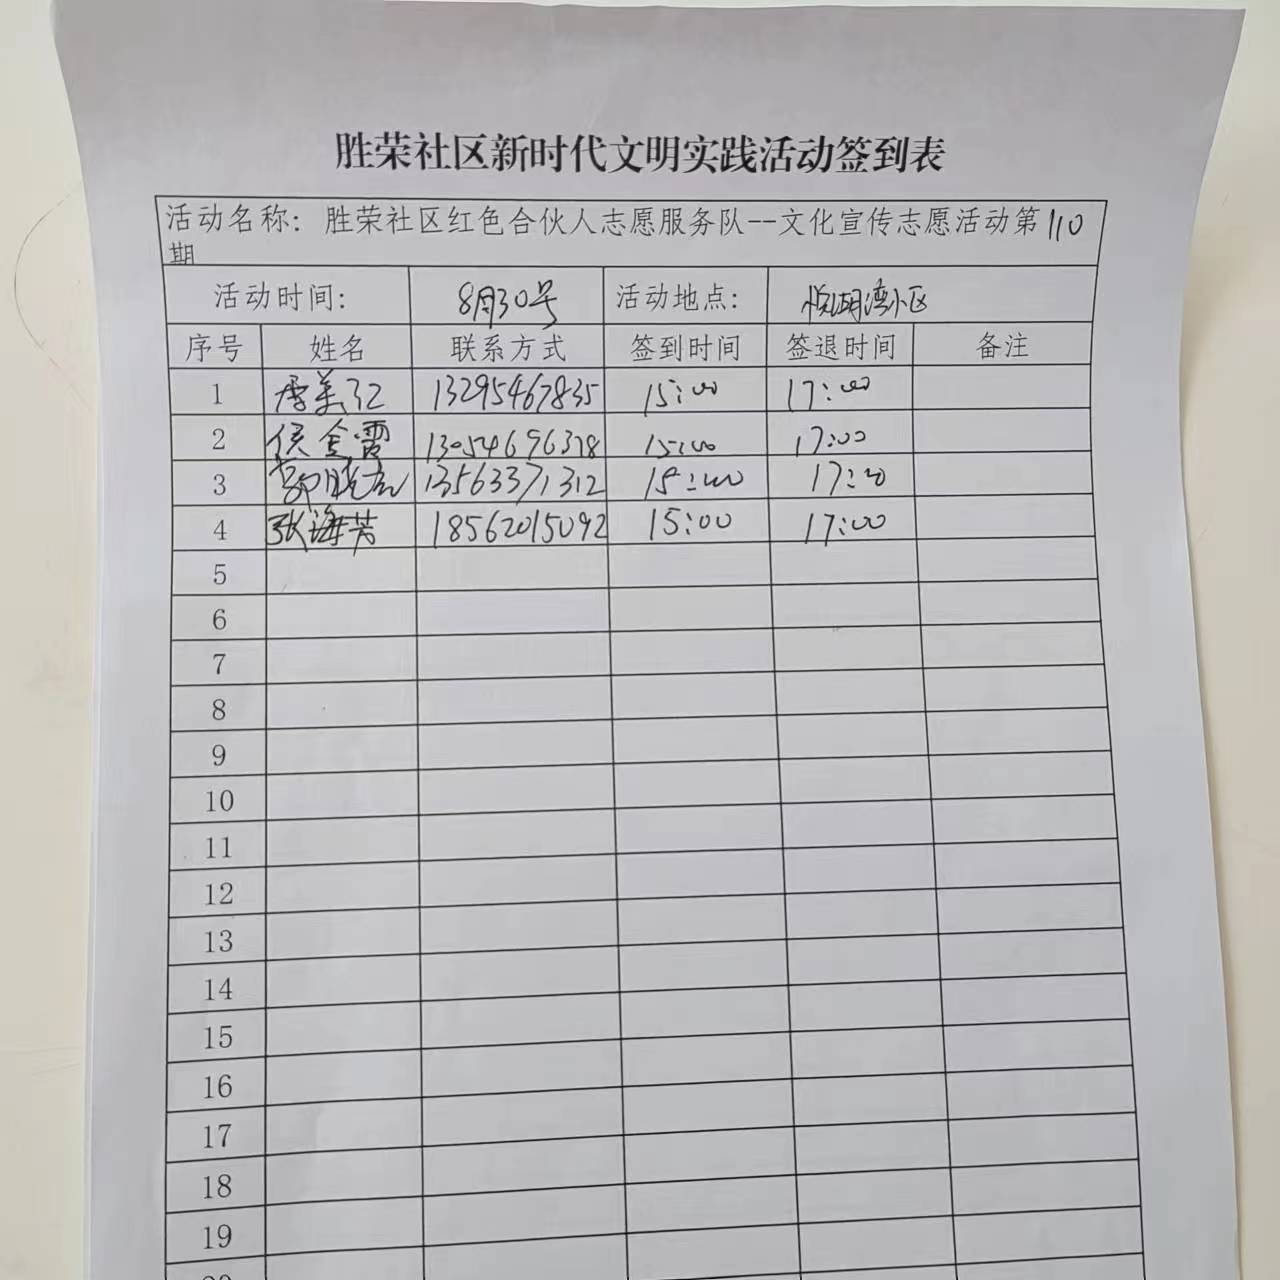 胜荣社区新时代文明实践活动签到表
活动名称：胜荣社区红色合伙人志愿服务队--文化宣传志愿活动第110
期
活动时间： 8月30号 活动地点： 悦湖湾小区
序号 姓名 联系方式 签到时间 签退时间 备注
1 李美江 13295467835 15:00 17:00
2 侯金雷 13054696378 15:00 17:00
3 郭晓 13563371312 15:00 17:00
4 张海芳 18562015092 15:00 17:00
5
6
7
8
9
10
11
12
13
14
15
16
17
18
19
20